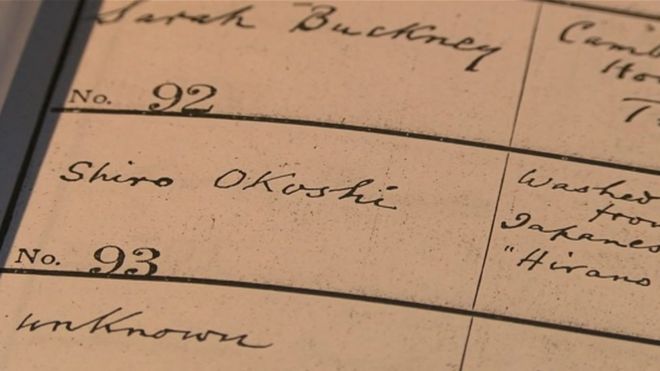 Sarah Buckney
No. 92
Shiro Okoshi
Washed
from
Japanes
"Hirano
No. 93
unknown